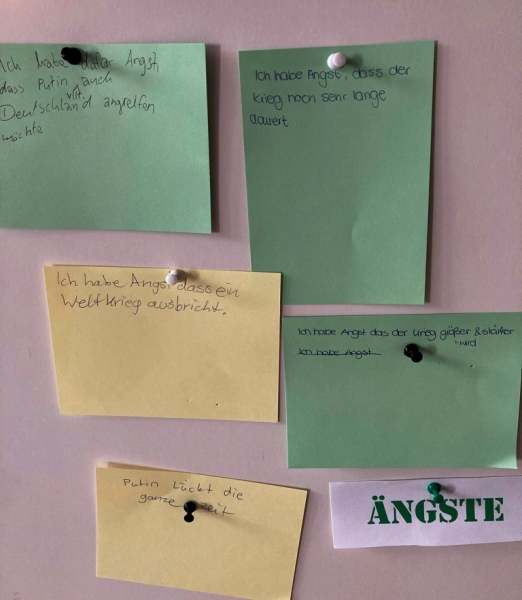 Ich habe dafür Angst
dass Putin auch
vllt.
Deutschland angreifen
möchte
Ich habe Angst, dass der
krieg noch sehr lange
dauert
Ich habe Angst dass ein
Weltkrieg ausbricht.
Ich habe Angst das der krieg größer & stärker
wird
Ich habe Angst
Putin lückt die
ganze Zeit
ÄNGSTE